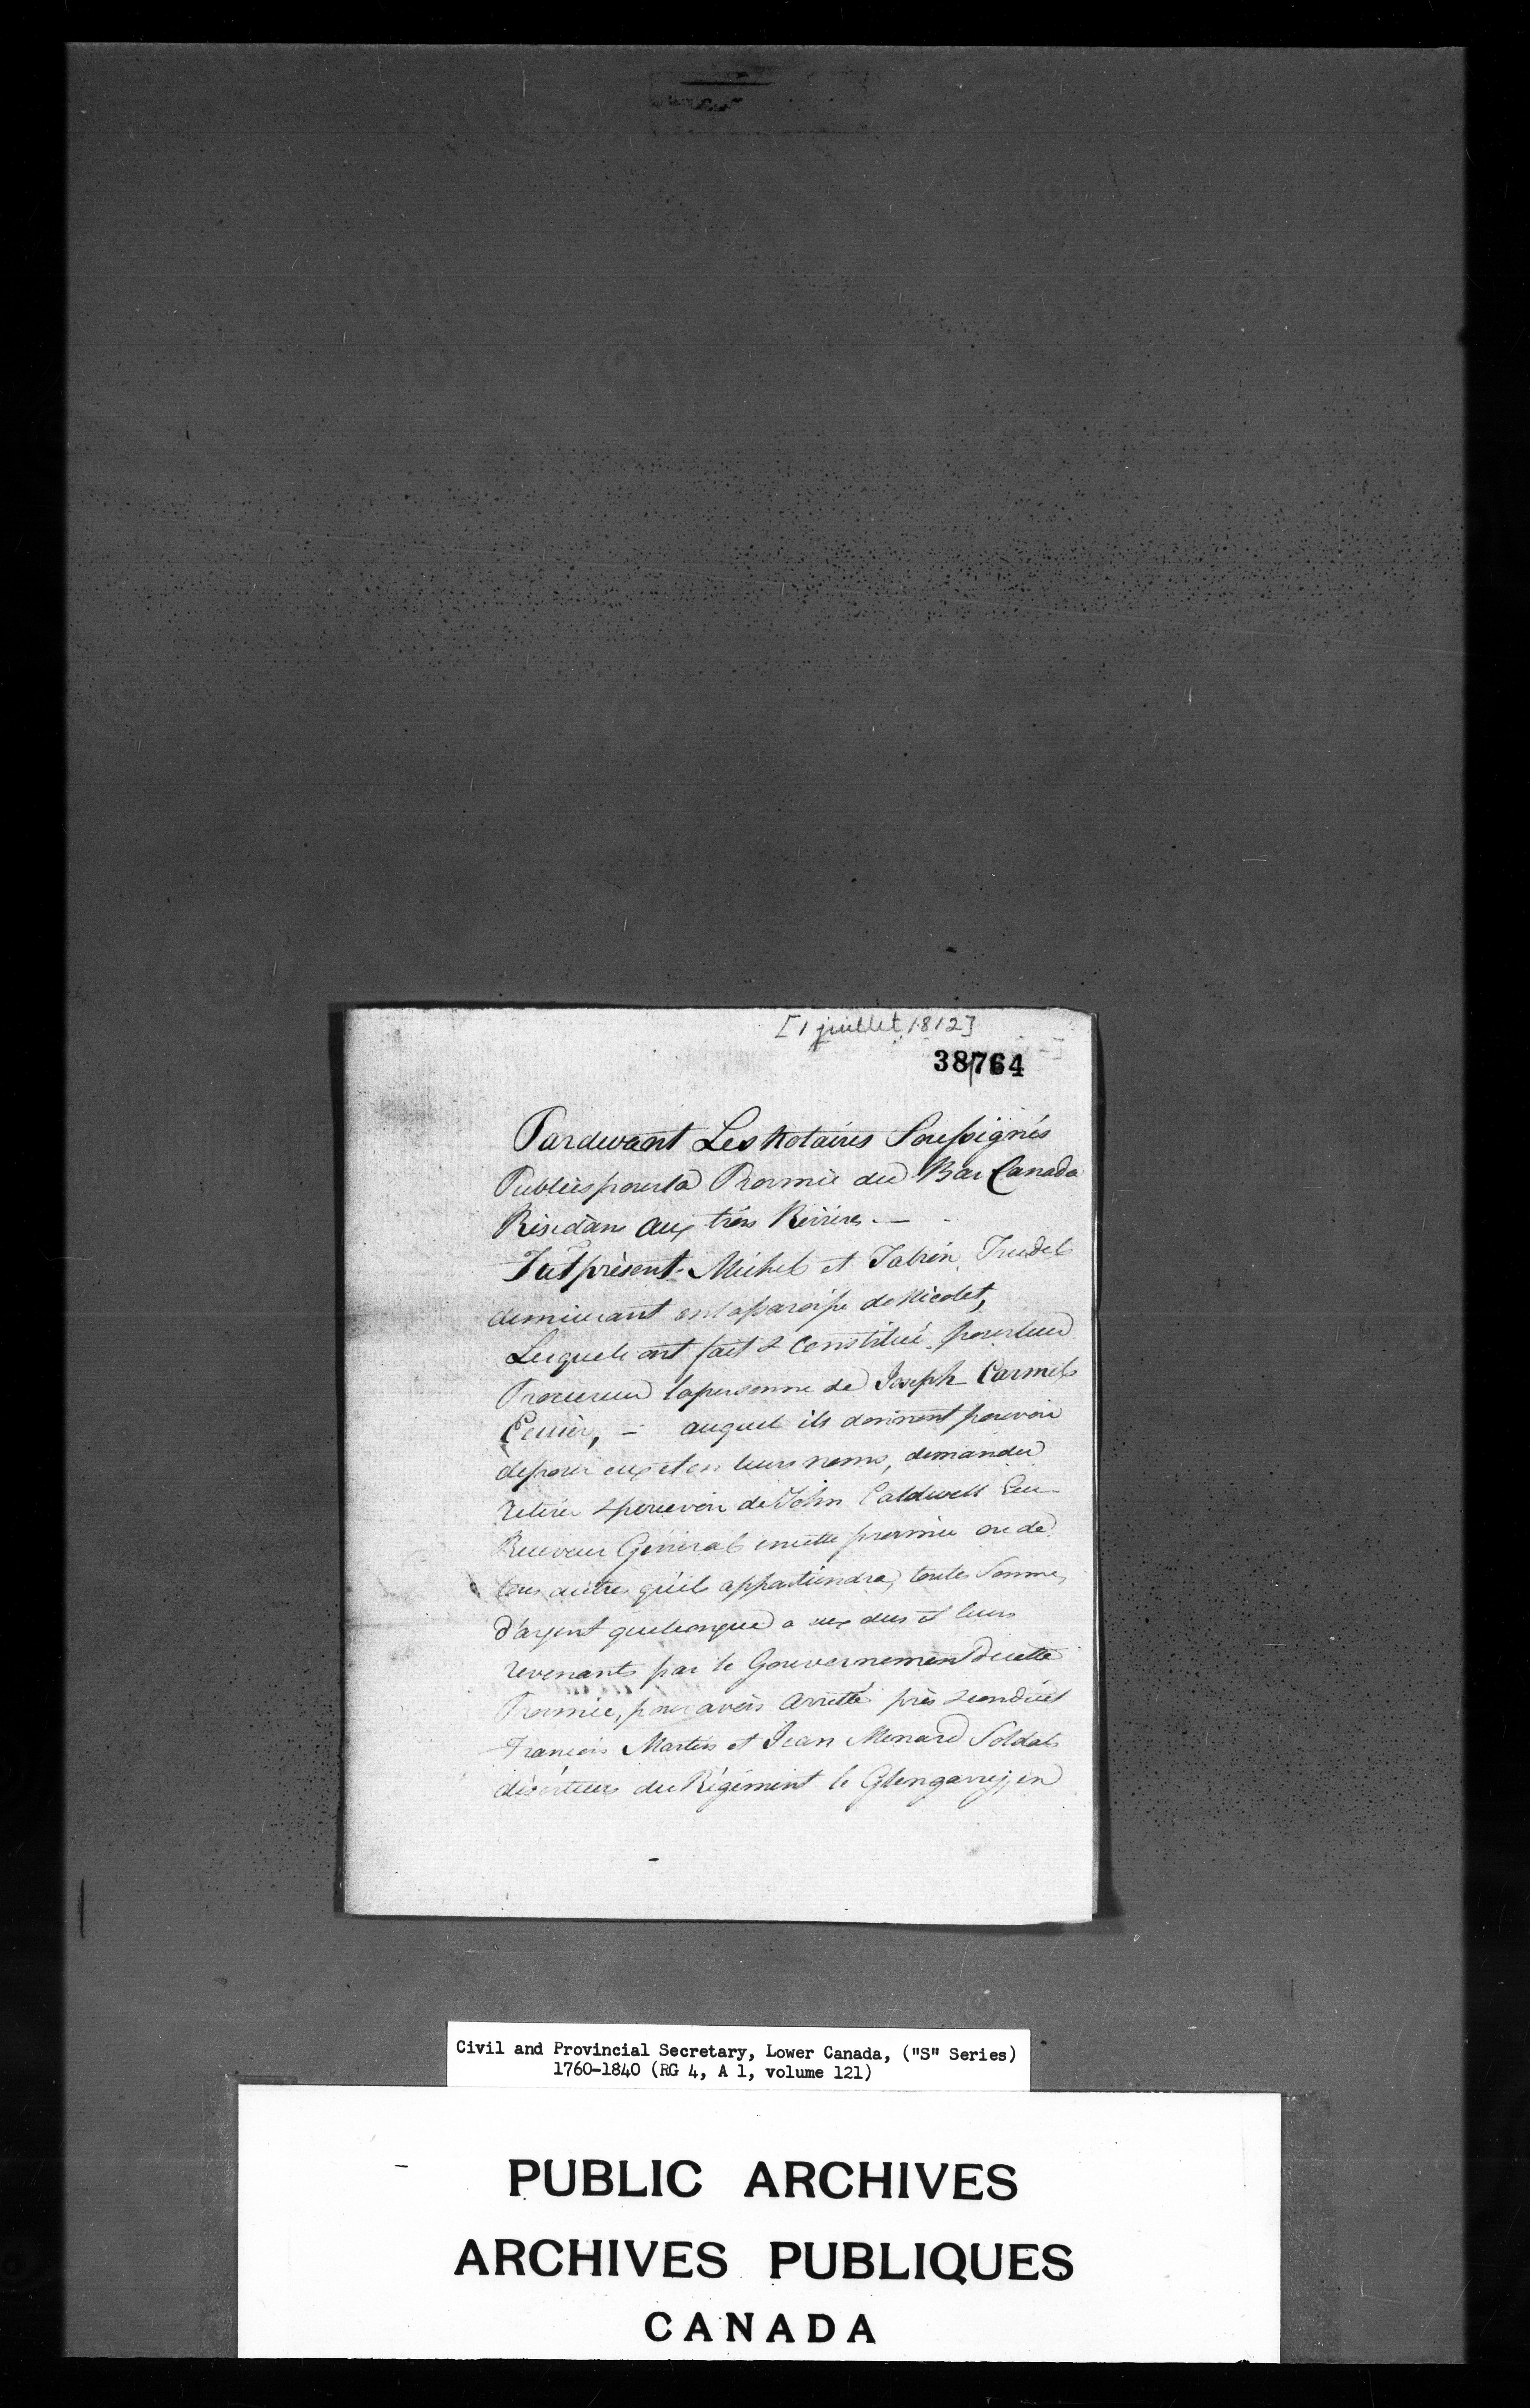 [1 juillet 1812]
38764
Pardevant Les Notaires Soussignés
Publics pour la Province du Bas Canada
Résidans aux trois Rivières. —
Fut présent Michel et Fabien Trudel
demeurant en la paroisse de Nicolet,
Lesquels ont fait & constitué pour leur
Procureur la personne de Joseph Carmel
Ecuier, — auquel ils donnent pouvoir
de pour eux et en leurs noms, demander
retirer & percevoir de John Caldwell Ecu-
Receveur Général en cette province ou de
tous autres qu'il appartiendra, toutes sommes
d'argent quelconque a eux dus et leurs
revenants par le Gouvernement de cette
Province, pour avoir arretté pris & conduit
François Martin et Jean Menard Soldats
déserteurs du Régiment le Glengarrey, en
Civil and Provincial Secretary, Lower Canada, ("S" Series)
1760-1840 (RG 4, A 1, volume 121)
PUBLIC ARCHIVES
ARCHIVES PUBLIQUES
CANADA